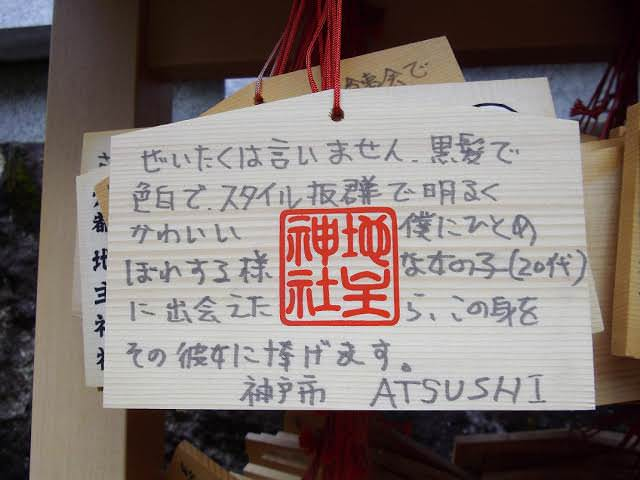 ぜいたくは言いません、黒髪で
色白で、スタイル抜群で明るく
かわいい 僕にひとめ
ぼれする様 な女の子(20代)
に出会えた ら、この身を
その彼女に捧げます。
神戸市 ATSUSHI
地主神社
地主神社